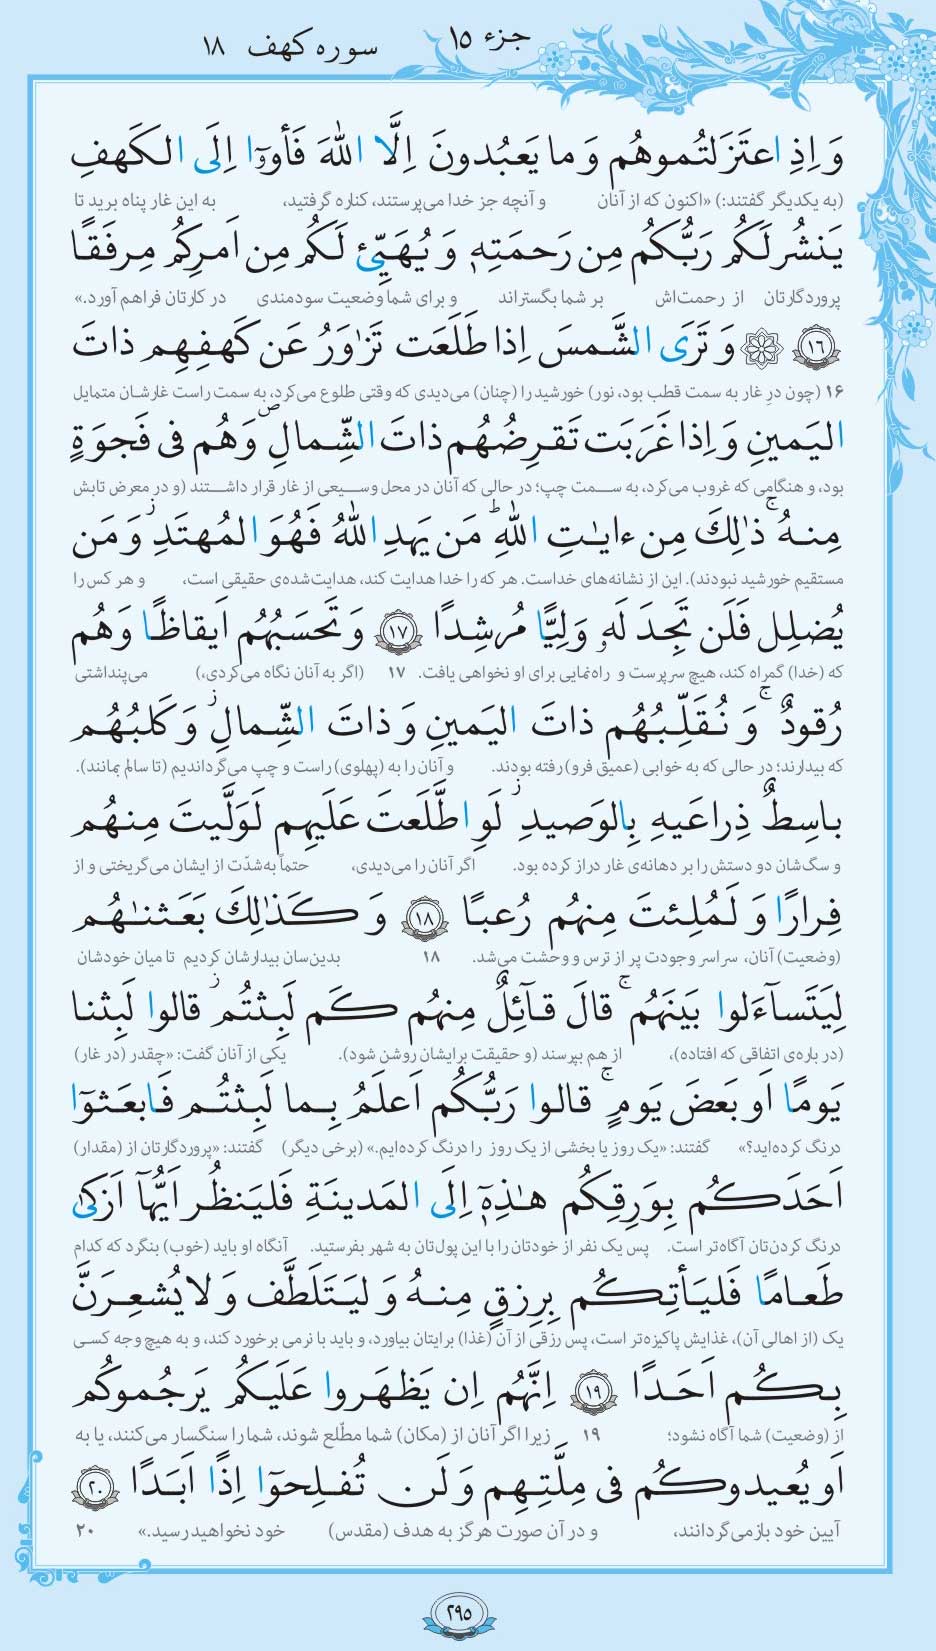 جزء ۱۵
سوره کهف ۱۸
وَ اِذِ اعتَزَلتُموهُم وَ ما یَعبُدونَ اِلَّا اللهَ فَأوۥٓا اِلَی الکَهفِ
(به یکدیگر گفتند:) «اکنون که از آنان و آنچه جز خدا می‌پرستند، کناره گرفتید، به این غار پناه برید تا
یَنشُر لَکُم رَبُّکُم مِن رَحمَتِهٖ وَ یُهَیِّئ لَکُم مِن اَمرِکُم مِرفَقًا
پروردگارتان از رحمت‌اش بر شما بگستراند و برای شما وضعیت سودمندی در کارتان فراهم آورد.»
۱۶ وَ تَرَی الشَّمسَ اِذا طَلَعَت تَزٰوَرُ عَن کَهفِهِم ذاتَ
۱۶ (چون درِ غار به سمت قطب بود، نور) خورشید را (چنان) می‌دیدی که وقتی طلوع می‌کرد، به سمت راست غارشان متمایل
الیَمینِ وَ اِذا غَرَبَت تَقرِضُهُم ذاتَ الشِّمالِ ۖ وَ هُم فی فَجوَةٍ
بود، و هنگامی که غروب می‌کرد، به سمت چپ؛ در حالی که آنان در محل وسیعی از غار قرار داشتند (و در معرض تابش
مِنهُ ۚ ذٰلِكَ مِن ءایٰتِ اللهِ ؕ مَن یَهدِ اللهُ فَهُوَ المُهتَدِ ز وَ مَن
مستقیم خورشید نبودند). این از نشانه‌های خداست. هر که را خدا هدایت کند، هدایت‌شده‌ی حقیقی است، و هر کس را
یُضلِل فَلَن تَجِدَ لَهٗ وَلِیًّا مُرشِدًا ۱۷ وَ تَحسَبُهُم اَیقاظًا وَ هُم
که (خدا) گمراه کند، هیچ سرپرست و راه‌نمایی برای او نخواهی یافت. ۱۷ (اگر به آنان نگاه می‌کردی،) می‌پنداشتی
رُقودٌ ۚ وَ نُقَلِّبُهُم ذاتَ الیَمینِ وَ ذاتَ الشِّمالِ ز وَ کَلبُهُم
که بیدارند؛ در حالی که به خوابی (عمیق فرو) رفته بودند. و آنان را به (پهلوی) راست و چپ می‌گرداندیم (تا سالم بمانند).
باسِطٌ ذِراعَیهِ بِالوَصیدِ ز لَوِ اطَّلَعتَ عَلَیهِم لَوَلَّیتَ مِنهُم
و سگ‌شان دو دستش را بر دهانه‌ی غار دراز کرده بود. اگر آنان را می‌دیدی، حتماً به‌شدّت از ایشان می‌گریختی و از
فِرارًا وَ لَمُلِئتَ مِنهُم رُعبًا ۱۸ وَ کَذٰلِكَ بَعَثنٰهُم
(وضعیت) آنان، سراسر وجودت پر از ترس و وحشت می‌شد. ۱۸ بدین‌سان بیدارشان کردیم تا میان خودشان
لِیَتَسآءَلوا بَینَهُم ۚ قالَ قآئِلٌ مِنهُم کَم لَبِثتُم ز قالوا لَبِثنا
(در باره‌ی اتفاقی که افتاده)، از هم بپرسند (و حقیقت برایشان روشن شود). یکی از آنان گفت: «چقدر (در غار)
یَومًا اَو بَعضَ یَومٍ ۚ قالوا رَبُّکُم اَعلَمُ بِما لَبِثتُم فَابعَثوٓا
درنگ کرده‌اید؟» گفتند: «یک روز یا بخشی از یک روز را درنگ کرده‌ایم.» (برخی دیگر) گفتند: «پروردگارتان از (مقدار)
اَحَدَکُم بِوَرِقِکُم هٰذِهٖٓ اِلَی المَدینَةِ فَلیَنظُر اَیُّهآ اَزکیٰ
درنگ کردن‌تان آگاه‌تر است. پس یک نفر از خودتان را با این پول‌تان به شهر بفرستید. آنگاه او باید (خوب) بنگرد که کدام
طَعامًا فَلیَأتِکُم بِرِزقٍ مِنهُ وَ لیَتَلَطَّف وَ لا یُشعِرَنَّ
یک (از اهالی آن)، غذایش پاکیزه‌تر است، پس رزقی از آن (غذا) برایتان بیاورد، و باید با نرمی برخورد کند، و به هیچ وجه کسی
بِکُم اَحَدًا ۱۹ اِنَّهُم اِن یَظهَروا عَلَیکُم یَرجُموکُم
از (وضعیت) شما آگاه نشود؛ ۱۹ زیرا اگر آنان از (مکان) شما مطّلع شوند، شما را سنگسار می‌کنند، یا به
اَو یُعیدوکُم فی مِلَّتِهِم وَ لَن تُفلِحوٓا اِذًا اَبَدًا ۲۰
آیین خود بازمی‌گردانند، و در آن صورت هرگز به هدف (مقدس) خود نخواهید رسید.» ۲۰
۲۹۵